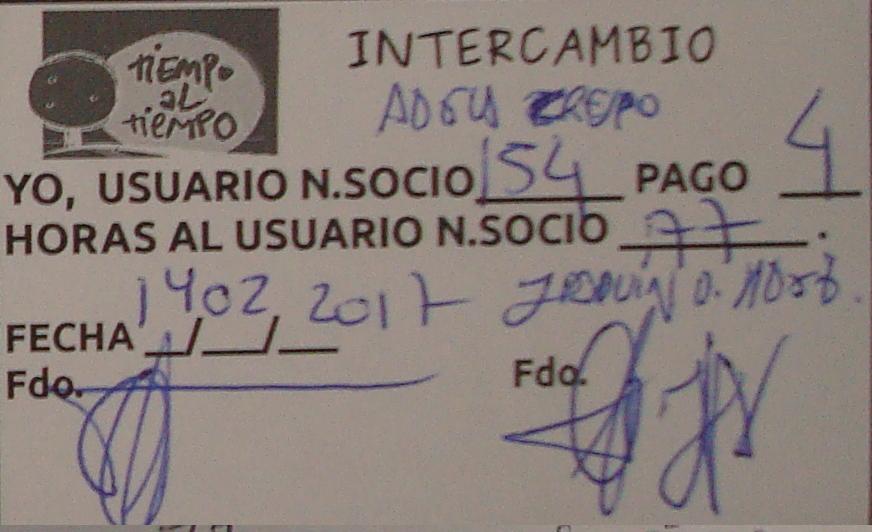 tiEMPo
aL
tiEMPO
INTERCAMBIO
YO, USUARIO N.SOCIO 154 PAGO 4
HORAS AL USUARIO N.SOCIO 77.
14 02 2017
FECHA __/__/__
Fdo.
Fdo.